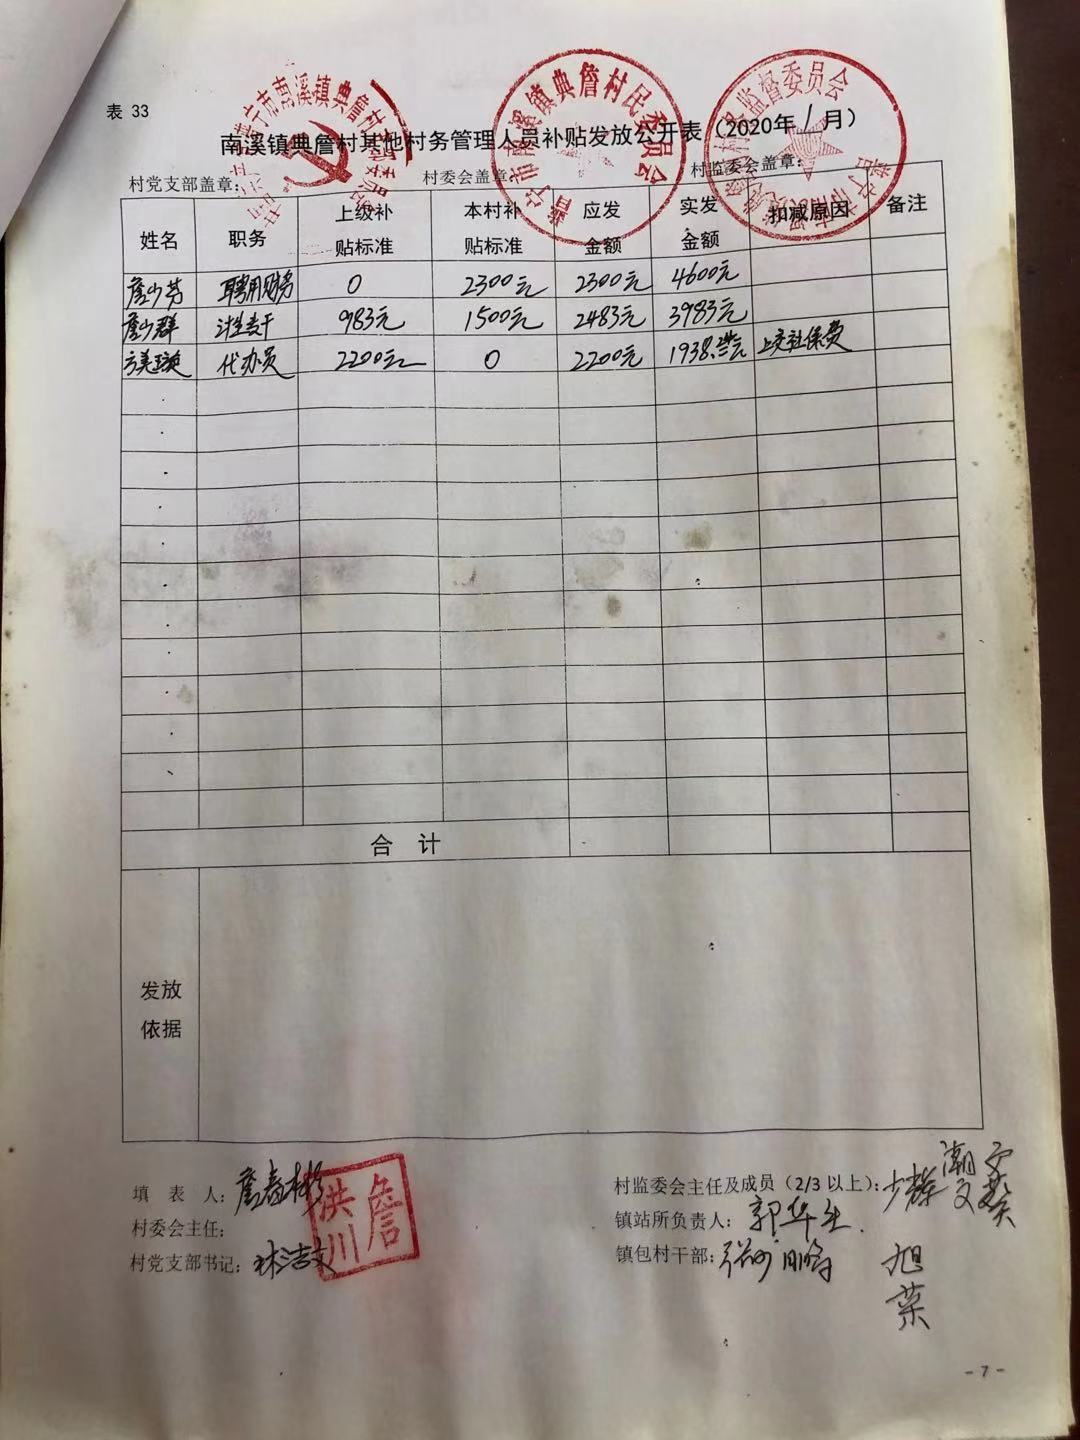 表 33
南溪镇典詹村其他村务管理人员补贴发放公开表（2020年1月）
村党支部盖章： 村委会盖章： 村监委会盖章：
普宁市南溪镇典詹村民委员会
姓名 职务 上级补贴标准 本村补贴标准 应发金额 实发金额 扣减原因 备注
詹少芬 聘用财务 0 2300元 2300元 4600元
詹少群 计生专干 983元 1500元 2483元 3983元
方美璇 代办员 2200元 0 2200元 1938. 元 上交社保费
合 计
发放依据
填 表 人：詹春彬 村监委会主任及成员（2/3以上）：
村委会主任： 詹洪川 镇站所负责人：郭华生
村党支部书记：林洁文 镇包村干部：
旭菜
- 7 -